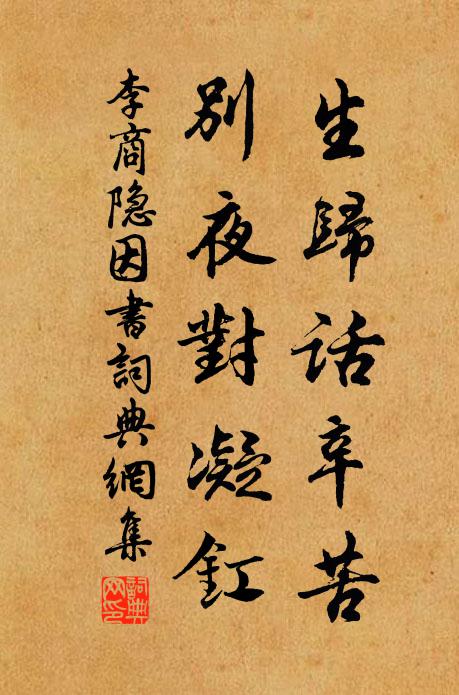 生歸話辛苦
別夜對凝釭
李商隐因書詞典網集
詞典
网印